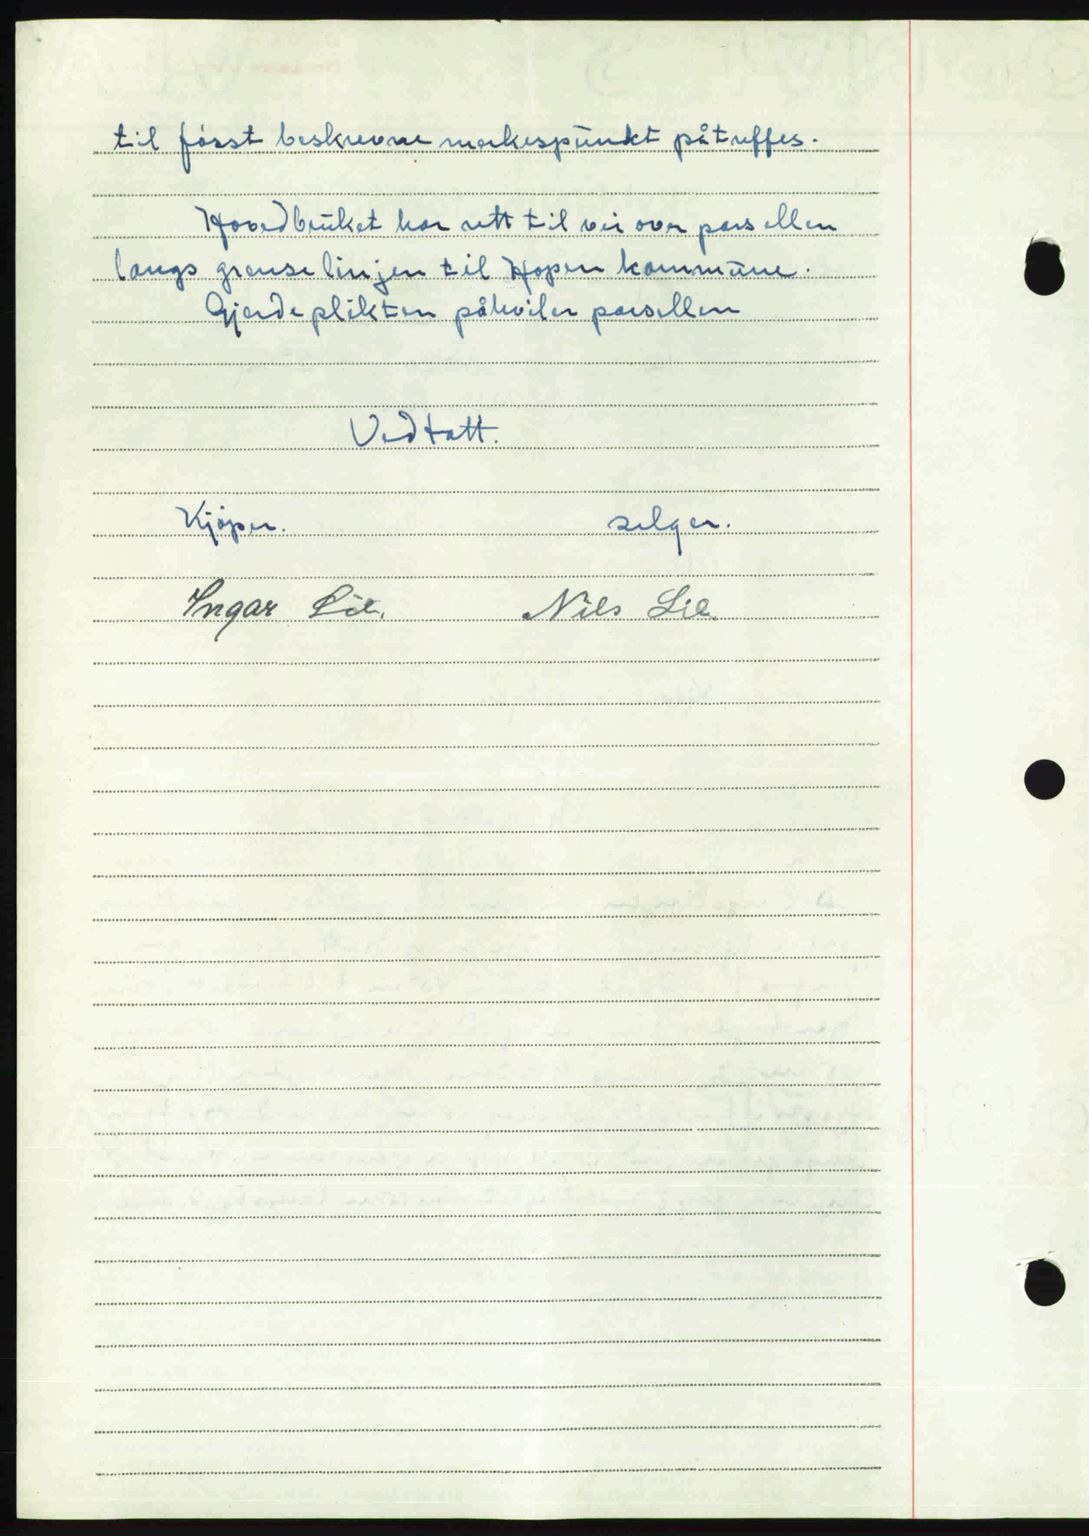 til først beskrevne merkespunkt påtreffes.
Hovedbruket har rett til vei over parsellen
langs grenselinjen til Hopen kommune.
Gjerdeplikten påhviler parsellen
Vedtatt.
Kjøper. selger.
Ingar Lie. Nils Lie.